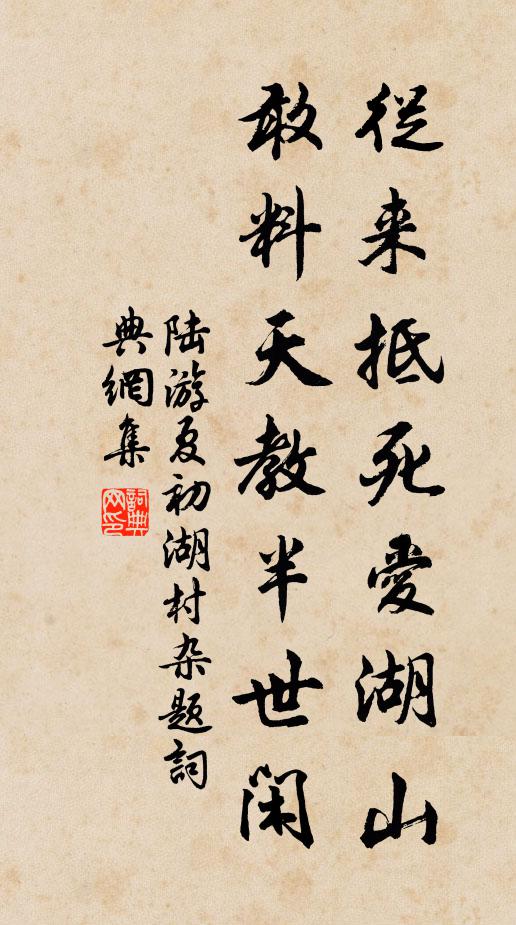 從来抵死愛湖山
敢料天教半世閑
陆游夏初湖村杂题詞
典網集
詞典网印